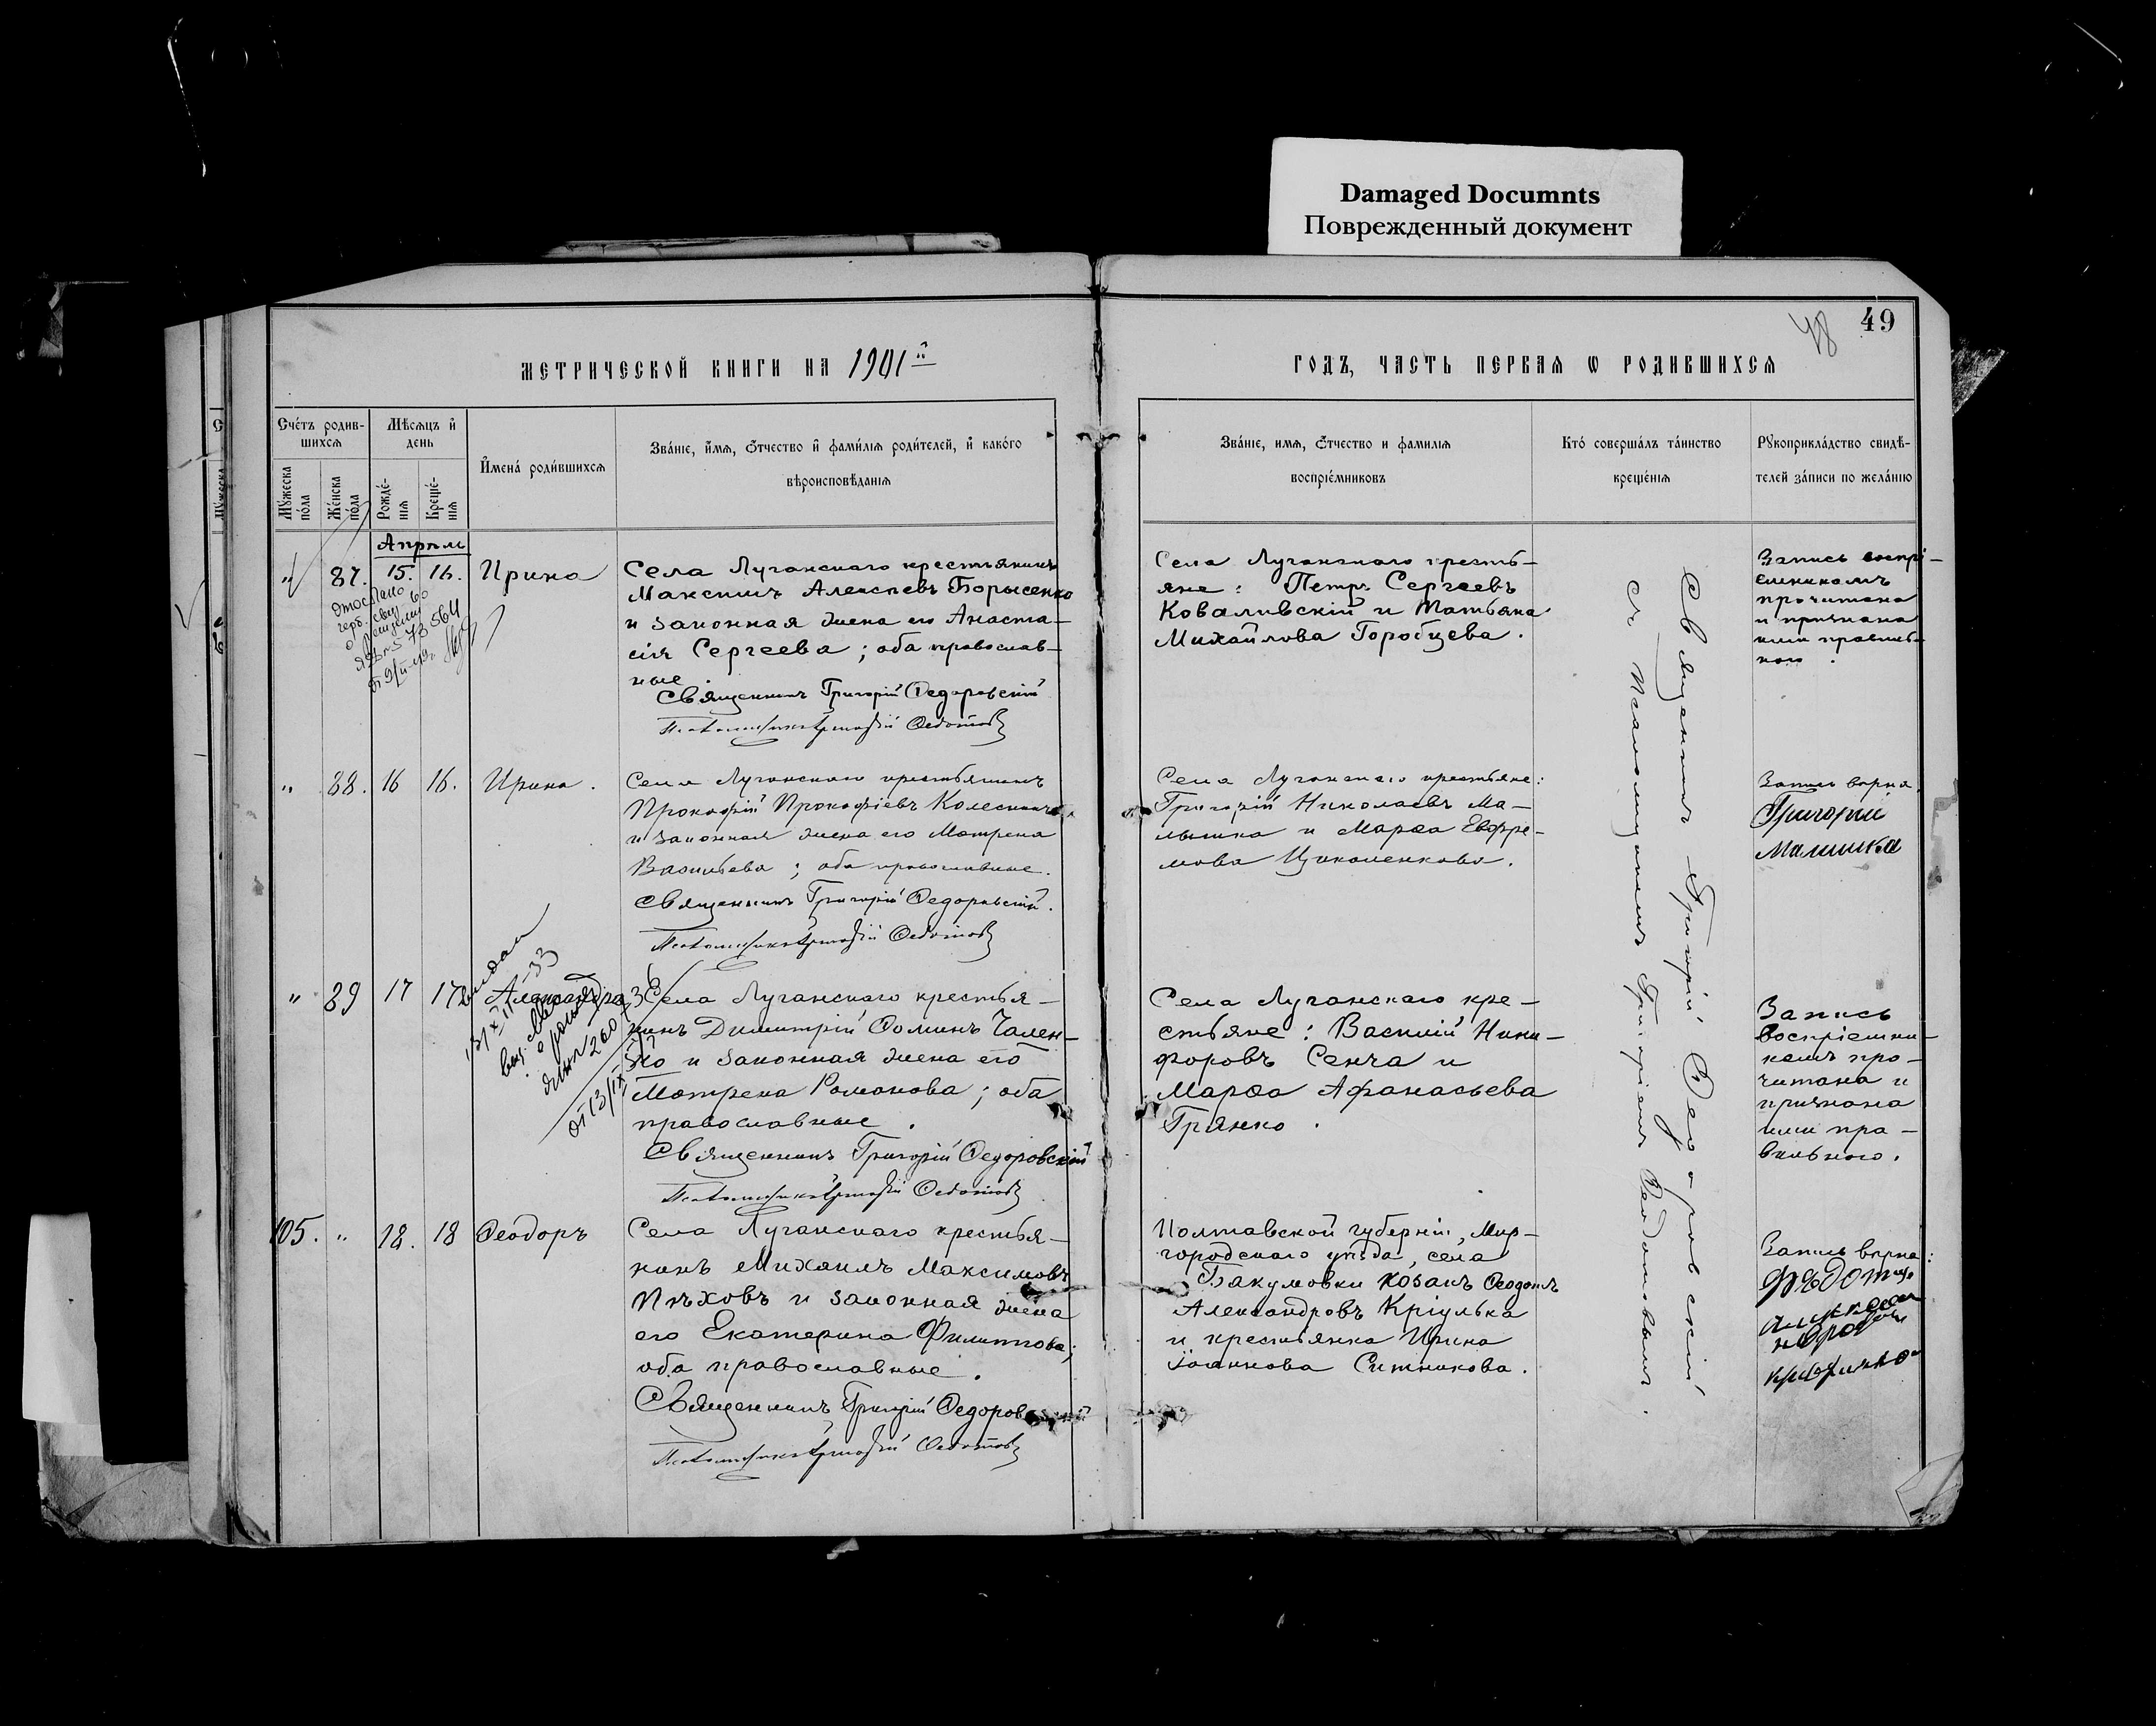 Damaged Documnts
Поврежденный документ
48
49
МЕТРИЧЕСКОЙ КНИГИ НА 1901 й
ГОДЪ, ЧАСТЬ ПЕРВАЯ Ѡ РОДИВШИХСЯ
Сче́тъ родив-
шихся
Мꙋ́жеска по́ла
Же́нска по́ла
Мѣсяцъ и день
Рожде́-
нія
Креще́-
нія
Имена́ роди́вшихся
Зва́ніе, и́мя, ѻ́тчество и фами́лія роди́телей, и како́го
вѣроисповѣ́данія
Зва́ніе, имя, ѻ́тчество и фамилія
воспріе́мниковъ
Кто́ соверша́лъ та́инство
креще́нія
Рꙋкоприкла́дство свидѣ́-
телей за́писи по жела́нію
Апрѣль
" 87. 15. 16. Ирина
Села Луганскаго крестьянинъ
Максимъ Алексѣевъ Борысенко
и законная жена его Анаста-
сія Сергеева; оба православ-
ные.
Священникъ Григорій Ѳедоровскій
Псаломщикъ Григорій Ѳедотовъ
Села Луганскаго кресть-
яне: Петръ Сергеевъ
Коваливскій и Татьяна
Михайлова Горобцева.
Запись воспрі-
емникомъ
прочитана
и признана
ими правиль-
ною.
" 88. 16 16. Ирина.
Села Луганскаго крестьянинъ
Прокофій Прокофіевъ Колесникъ
и законная жена его Матрена
Васильева; оба православные.
Священникъ Григорій Ѳедоровскій.
Псаломщикъ Григорій Ѳедотовъ
Села Луганскаго крестьяне:
Григорій Николаевъ Ма-
лышка и Марѳа Евфре-
мова Цыкаленкова.
Запись вѣрна.
Григорій
Малишка
" 89 17 17 Александра
Села Луганскаго крестья-
нинъ Димитрій Ѳоминъ Чален-
ко и законная жена его
Матрена Романова; оба
православные.
Священникъ Григорій Ѳедоровскій
Псаломщикъ Григорій Ѳедотовъ
Села Луганскаго кре-
стьяне: Василій Ники-
форовъ Сенча и
Марѳа Афанасьева
Грянко.
Запись
воспріемни-
комъ про-
читана и
признана
ими пра-
вильною.
105. " 18. 18 Ѳеодоръ
Села Луганскаго крестья-
нинъ Михаилъ Максимовъ
Пѣховъ и законная жена
его Екатерина Филиппова;
оба православные.
Священникъ Григорій Ѳедоровскій
Псаломщикъ Григорій Ѳедотовъ
Полтавской губерніи, Мир-
городскаго уѣзда, села
Бакумовки козакъ Ѳеодотъ
Александровъ Кріулька
и крестьянка Ирина
Іоаннова Ситникова.
Запись вѣрна:
Священникъ Григорій Ѳедоровскій
съ Псаломщикомъ Григоріемъ Ѳедотовымъ.